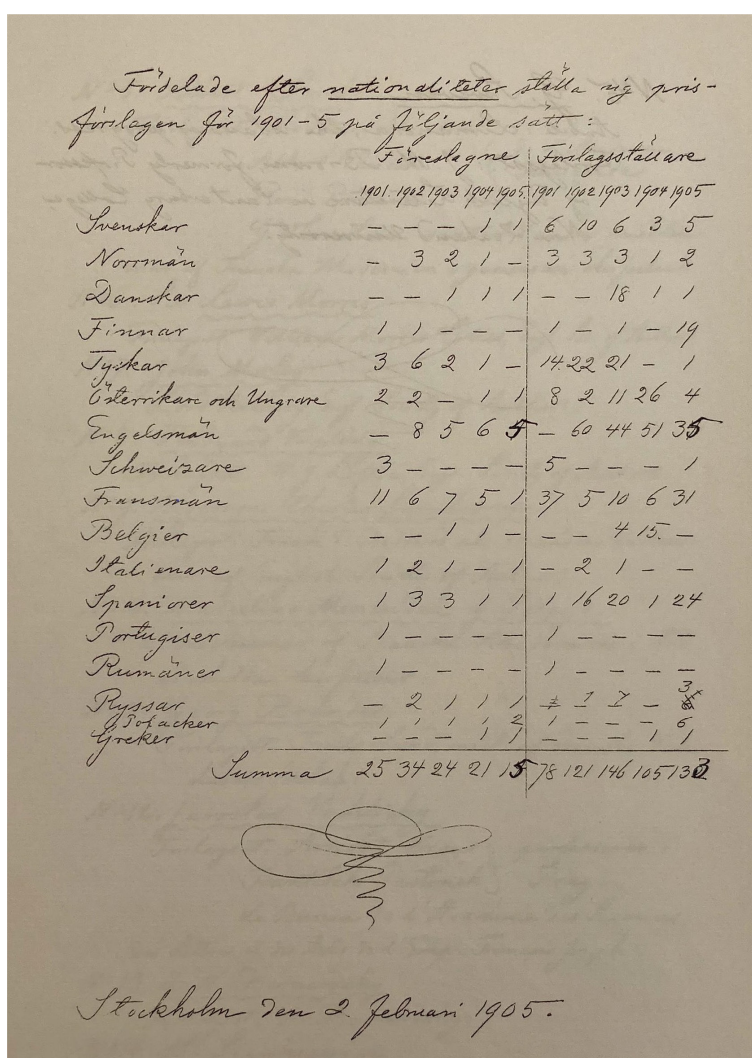 Fördelade efter nationaliteter ställa sig pris-
förslagen för 1901-5 på följande sätt:
Föreslagne Förslagsställare
1901. 1902 1903 1904 1905. 1901 1902 1903 1904 1905
Svenskar — — — 1 1 6 10 6 3 5
Norrmän — 3 2 1 — 3 3 3 1 2
Danskar — — 1 1 1 — — 18 1 1
Finnar 1 1 — — — 1 — 1 — 19
Tyskar 3 6 2 1 — 14. 22 21 — 1
Österrikare och Ungrare 2 2 — 1 1 8 2 11 26 4
Engelsmän — 8 5 6 5 — 60 44 51 35
Schweizare 3 — — — — 5 — — — 1
Fransmän 11 6 7 5 1 37 5 10 6 31
Belgier — — 1 1 — — — 4 15. —
Italienare 1 2 1 — 1 — 2 1 — —
Spaniorer 1 3 3 1 1 1 16 20 1 24
Portugiser 1 — — — — 1 — — — —
Rumäner 1 — — — — 1 — — — —
Ryssar — 2 1 1 1 — 3
Polacker 1 1 1 1 2 1 — — — 6
Greker — — — 1 1 — — — 1 1
Summa 25 34 24 21 15 78 121 146 105 133
Stockholm den 2. februari 1905.